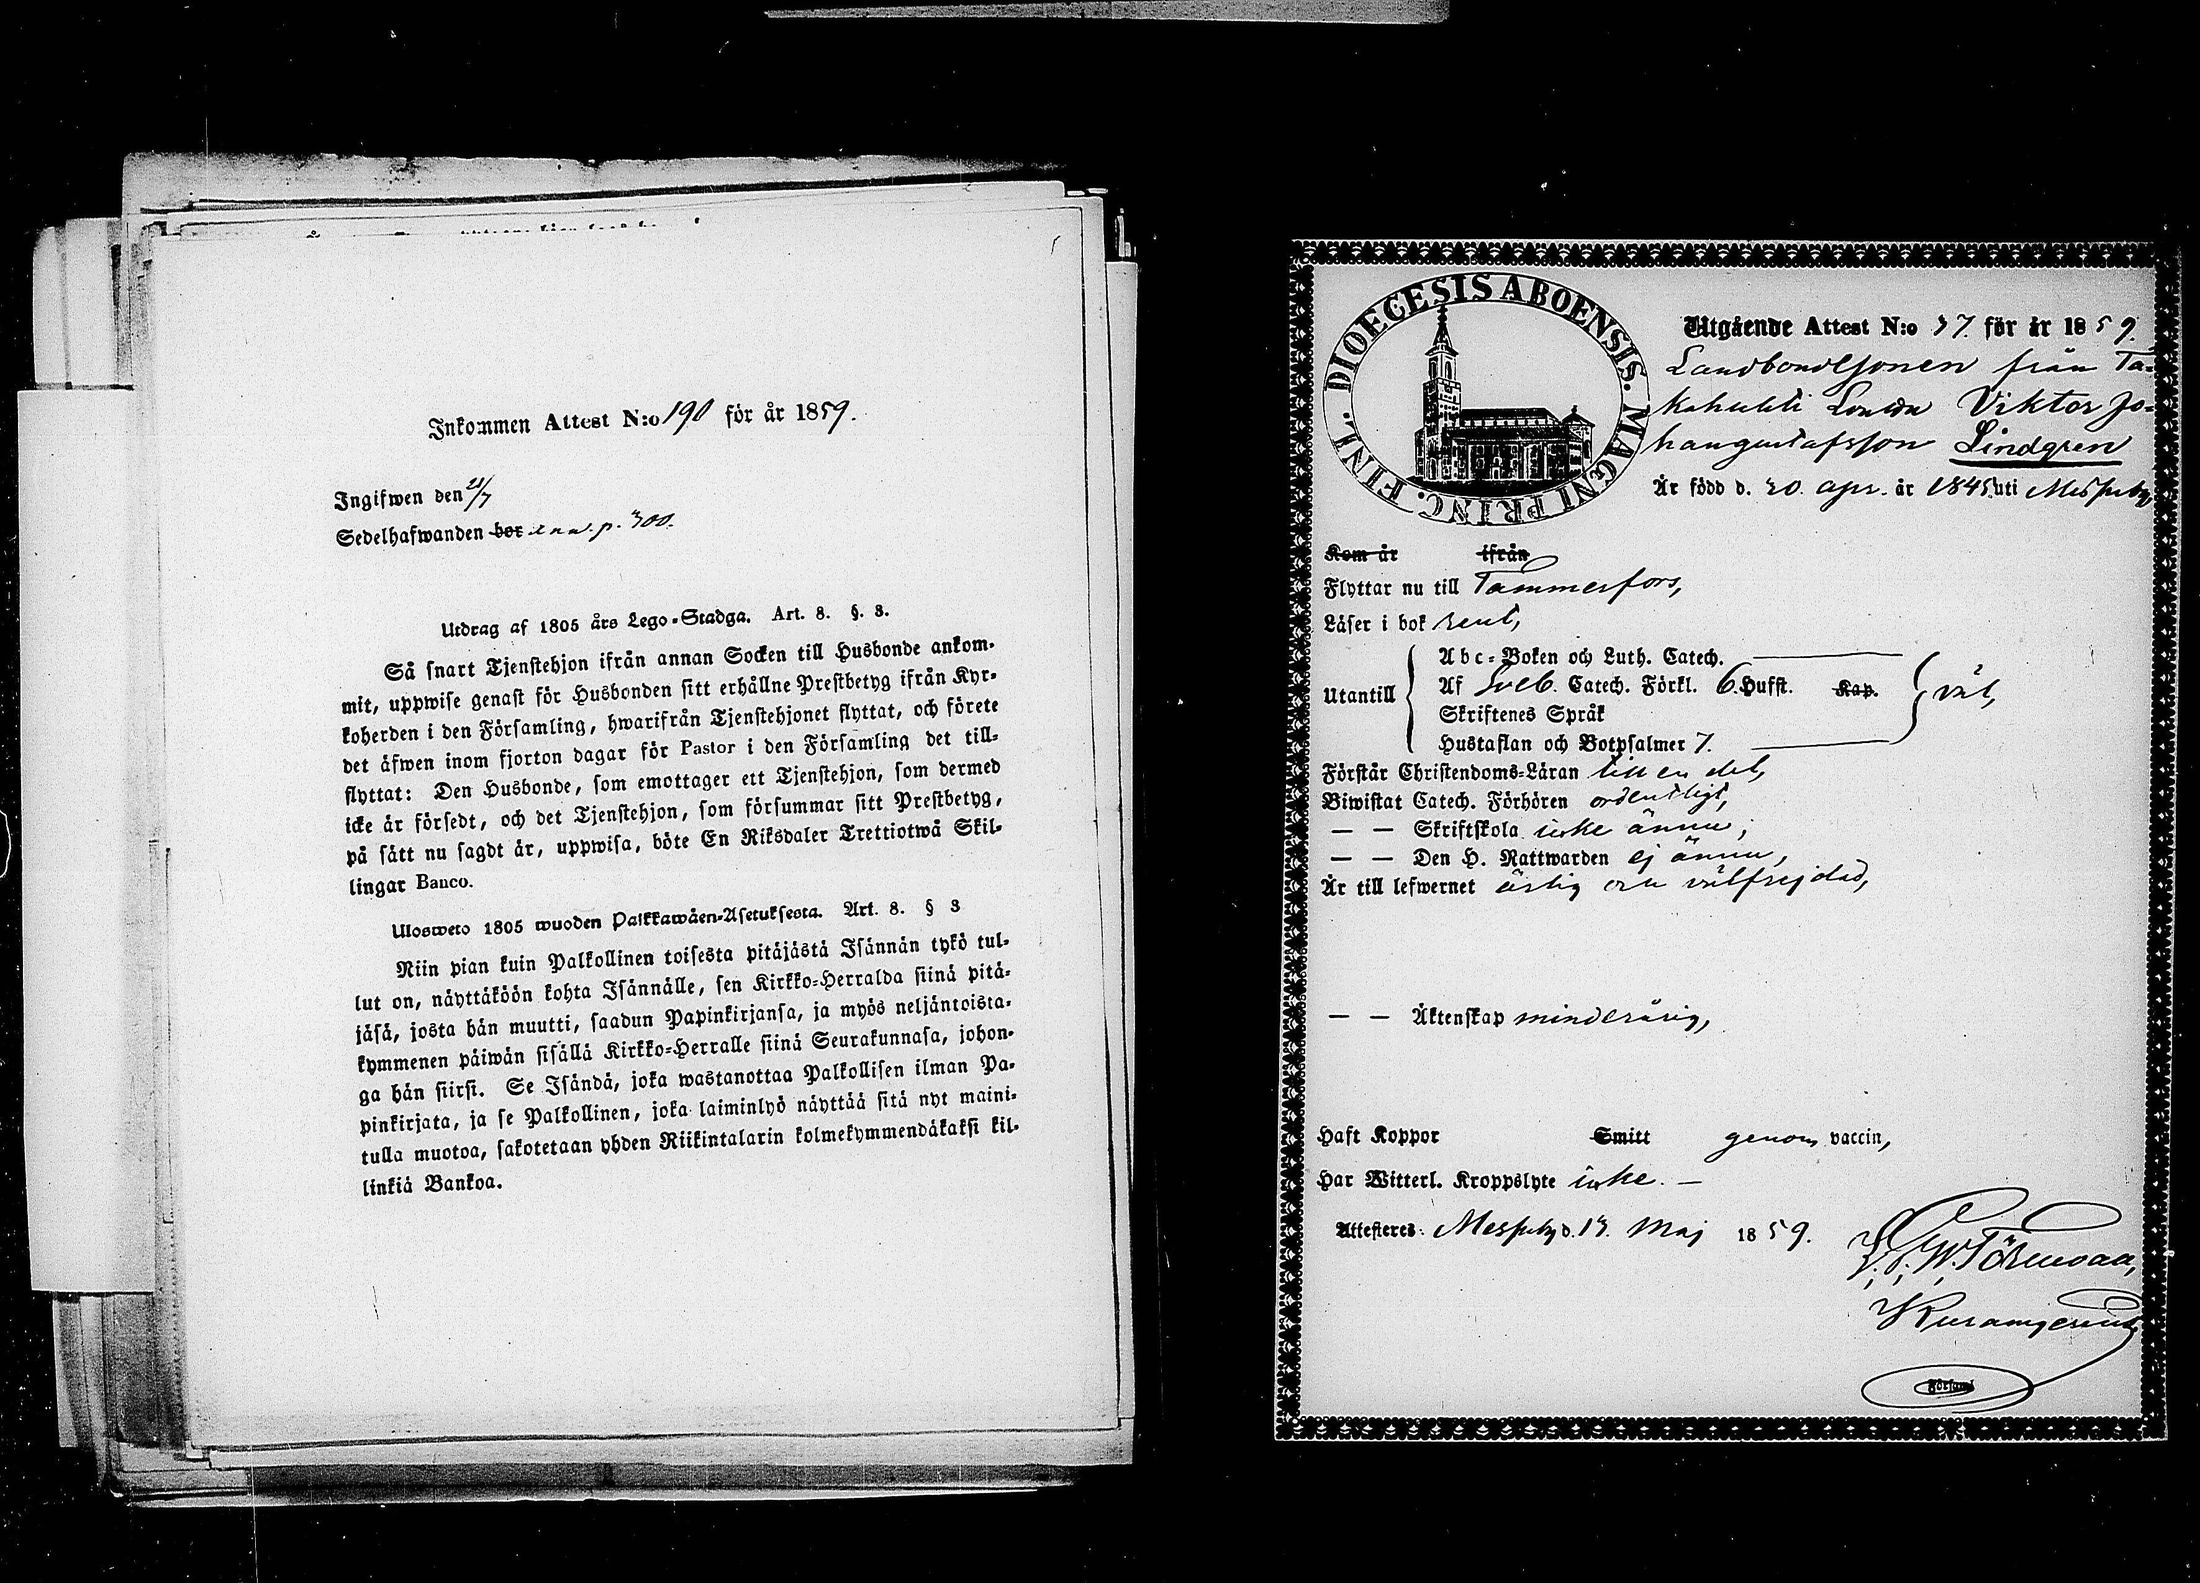 Inkommen Attest N:o 190 för år 1859.
Ingifwen den 21/7
Sedelhafwanden bor p. 300.
Utdrag af 1805 års Lego-Stadga. Art. 8. §. 3.
Så snart Tjenstehjon ifrån annan Socken till Husbonde ankom-
mit, uppwise genast för Husbonden sitt erhållne Prestbetyg ifrån Kyr-
koherden i den Församling, hwarifrån Tjenstehjonet flyttat, och förete
det äfwen inom fjorton dagar för Pastor i den Församling det till-
flyttat: Den Husbonde, som emottager ett Tjenstehjon, som dermed
icke är försedt, och det Tjenstehjon, som försummar sitt Prestbetyg,
på sätt nu sagdt är, uppwisa, böte En Riksdaler Trettiotwå Skil-
lingar Banco.
Ulosweto 1805 wuoden Palkkawäen-Asetuksesta. Art. 8. § 3
Niin pian kuin Palkollinen toisesta pitäjästä Isännän tykö tul-
lut on, näyttäköön kohta Isännälle, sen Kirkko-Herralda siinä pitä-
jäsä, josta hän muutti, saadun Papinkirjansa, ja myös neljäntoista-
kymmenen päiwän sisällä Kirkko-Herralle siinä Seurakunnasa, johon-
ga hän siirsi. Se Isändä, joka wastanottaa Palkollisen ilman Pa-
pinkirjata, ja se Palkollinen, joka laiminlyö näyttää sitä nyt maini-
tulla muotoa, sakotetaan yhden Riikintalarin kolmekymmendäkaksi kil-
linkiä Bankoa.
DIOECESIS ABOENSIS. MAGNI PRINC. FINL.
Utgående Attest N:o 37. för år 1859.
Landbondesonen från Ta-
Viktor Jo-
hangustafsson Lindgren
Är född d. 20. apr. år 1845 uti Messuby,
Kom år ifrån
Flyttar nu till Tammerfors,
Läser i bok rent,
Abc-Boken och Luth. Catech.
Utantill Af Sveb. Catech. Förkl. 6. Hufst. Kap. väl,
Skriftenes Språk
Hustaflan och Botpsalmer 7.
Förstår Christendoms-Läran till en del,
Biwistat Catech. Förhören ordentligt,
— — Skriftskola icke ännu,
— — Den H. Nattwarden ej ännu,
Är till lefwernet ärlig och välfrejdad,
— — Äktenskap minderårig,
Haft Koppor Smitt genom vaccin,
Har Witterl. Kroppslyte icke. —
Attesteres: Messuby d. 13. Maj 1859.
Församl